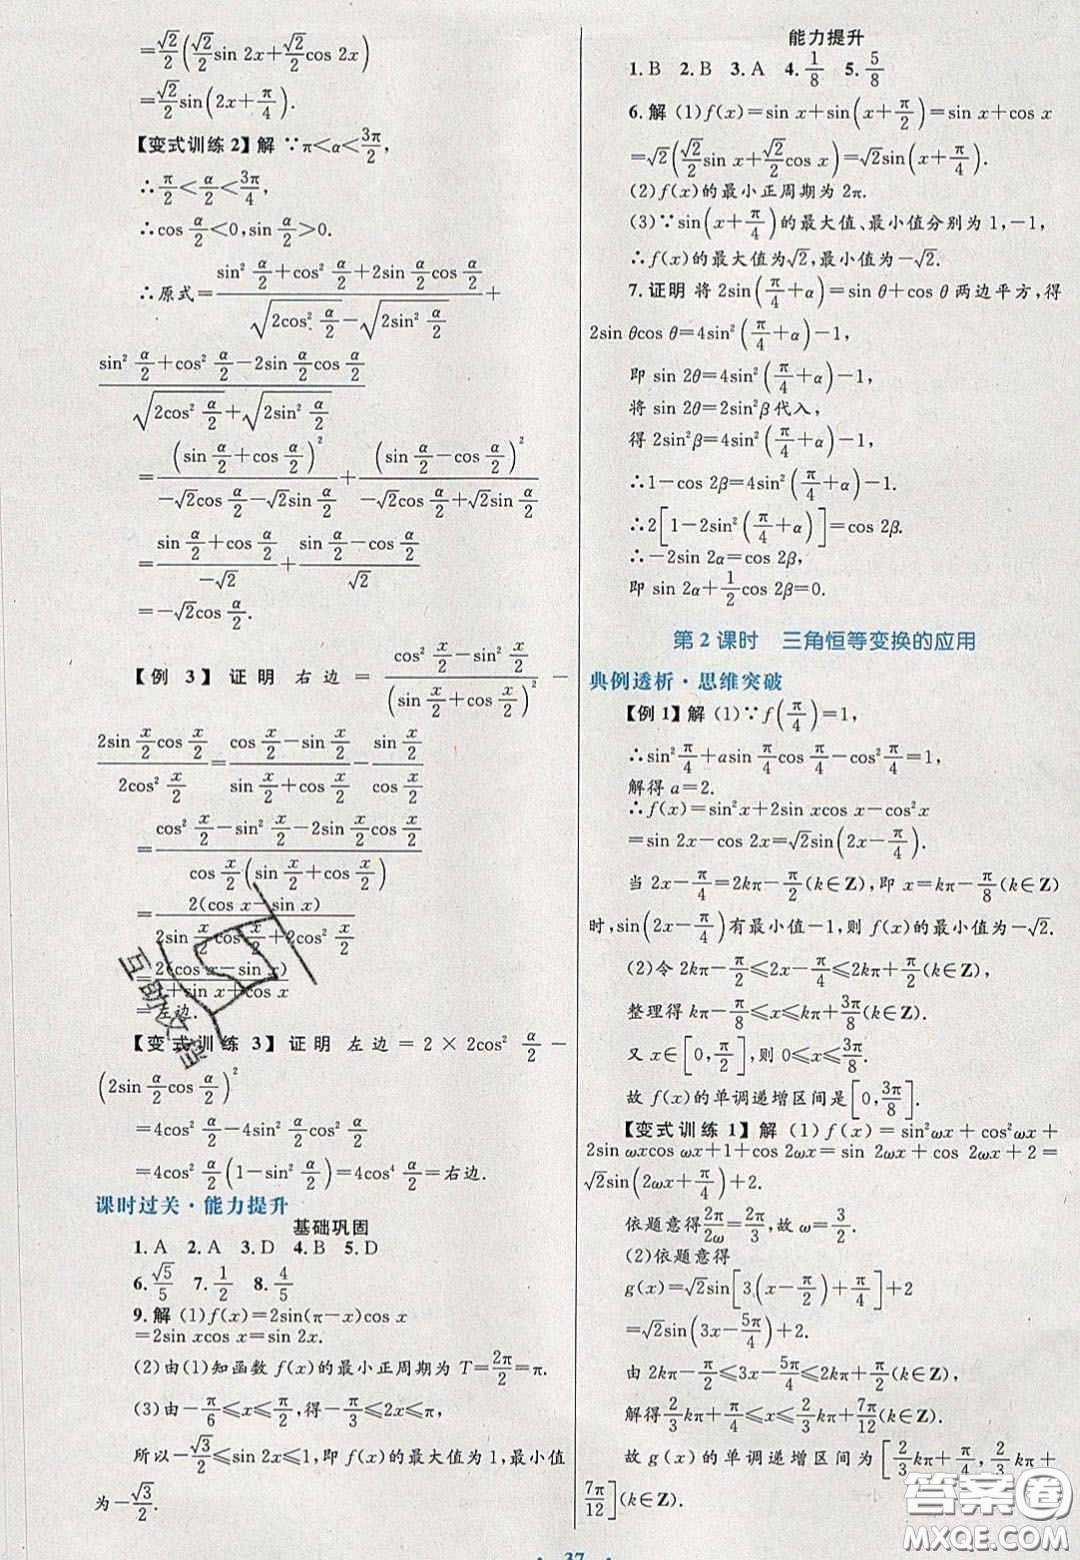 =√2/2(√2/2 sin 2x+√2/2 cos 2x)
=√2/2 sin(2x+π/4).
【变式训练2】解 ∵π<α<3π/2,
∴π/2<α/2<3π/4,
∴cos α/2<0,sin α/2>0.
∴原式=(sin² α/2+cos² α/2+2sin α/2 cos α/2)/(√(2cos² α/2)-√(2sin² α/2))+
(sin² α/2+cos² α/2-2sin α/2 cos α/2)/(√(2cos² α/2)+√(2sin² α/2))
=(sin α/2+cos α/2)²/(-√2cos α/2-√2sin α/2)+(sin α/2-cos α/2)²/(-√2cos α/2+√2sin α/2)
=(sin α/2+cos α/2)/(-√2)+(sin α/2-cos α/2)/√2
=-√2cos α/2.
【例 3】 证明 右边=(cos² x/2-sin² x/2)/(sin x/2+cos x/2)²-
(2sin x/2 cos x/2)/(2cos² x/2)=(cos x/2-sin x/2)/(sin x/2+cos x/2)-(sin x/2)/(cos x/2)
=(cos² x/2-sin² x/2-2sin x/2 cos x/2)/(cos x/2(sin x/2+cos x/2))
=2(cos x-sin x)/(2sin x/2 cos x/2+2cos² x/2)
=2(cos x-sin x)/(1+sin x+cos x)
=左边.
【变式训练 3】 证明 左边=2×2cos² α/2-
(2sin α/2 cos α/2)²
=4cos² α/2-4sin² α/2 cos² α/2
=4cos² α/2(1-sin² α/2)=4cos⁴ α/2=右边.
课时过关·能力提升
基础巩固
1.A 2.A 3.D 4.B 5.D
6.√5/5 7.1/2 8.4/5
9.解 (1)f(x)=2sin(π-x)cos x
=2sin xcos x=sin 2x.
(2)由(1)知函数 f(x)的最小正周期为 T=2π/2=π.
(3)由-π/6≤x≤π/2,得-π/3≤2x≤π,
所以-√3/2≤sin 2x≤1,即 f(x)的最大值为 1,最小值
为-√3/2.
能力提升
1.B 2.B 3.A 4.1/8 5.5/8
6.解 (1)f(x)=sin x+sin(x+π/2)=sin x+cos x
=√2(√2/2 sin x+√2/2 cos x)=√2sin(x+π/4).
(2)f(x)的最小正周期为 2π.
(3)∵sin(x+π/4)的最大值、最小值分别为 1,-1,
∴f(x)的最大值为√2,最小值为-√2.
7.证明 将 2sin(π/4+α)=sin θ+cos θ 两边平方,得
2sin θcos θ=4sin²(π/4+α)-1,
即 sin 2θ=4sin²(π/4+α)-1,
将 sin 2θ=2sin²β代入,
得 2sin²β=4sin²(π/4+α)-1.
∴1-cos 2β=4sin²(π/4+α)-1.
∴2[1-2sin²(π/4+α)]=cos 2β.
∴-2sin 2α=cos 2β,
即 sin 2α+1/2 cos 2β=0.
第 2 课时 三角恒等变换的应用
典例透析·思维突破
【例 1】解 (1)∵f(π/4)=1,
∴sin² π/4+asin π/4 cos π/4-cos² π/4=1,
解得 a=2.
∴f(x)=sin²x+2sin xcos x-cos²x
=sin 2x-cos 2x=√2sin(2x-π/4).
当 2x-π/4=2kπ-π/2(k∈Z),即 x=kπ-π/8(k∈Z)
时,sin(2x-π/4)有最小值-1,则 f(x)的最小值为-√2.
(2)令 2kπ-π/2≤2x-π/4≤2kπ+π/2(k∈Z),
整理得 kπ-π/8≤x≤kπ+3π/8(k∈Z).
又 x∈[0,π/2],则 0≤x≤3π/8.
故 f(x)的单调递增区间是[0,3π/8].
【变式训练 1】解 (1)f(x)=sin²ωx+cos²ωx+
2sin ωxcos ωx+1+cos 2ωx=sin 2ωx+cos 2ωx+2=
√2sin(2ωx+π/4)+2.
依题意得2π/2ω=2π/3,故 ω=3/2.
(2)依题意得
g(x)=√2sin[3(x-π/2)+π/4]+2
=√2sin(3x-5π/4)+2.
由 2kπ-π/2≤3x-5π/4≤2kπ+π/2(k∈Z),
解得2/3kπ+π/4≤x≤2/3kπ+7π/12(k∈Z).
故 g(x)的单调递增区间为 [2/3kπ+π/4,2/3kπ+
7π/12](k∈Z).
· 37 ·
互助文档
答案圈
MXQE.COM